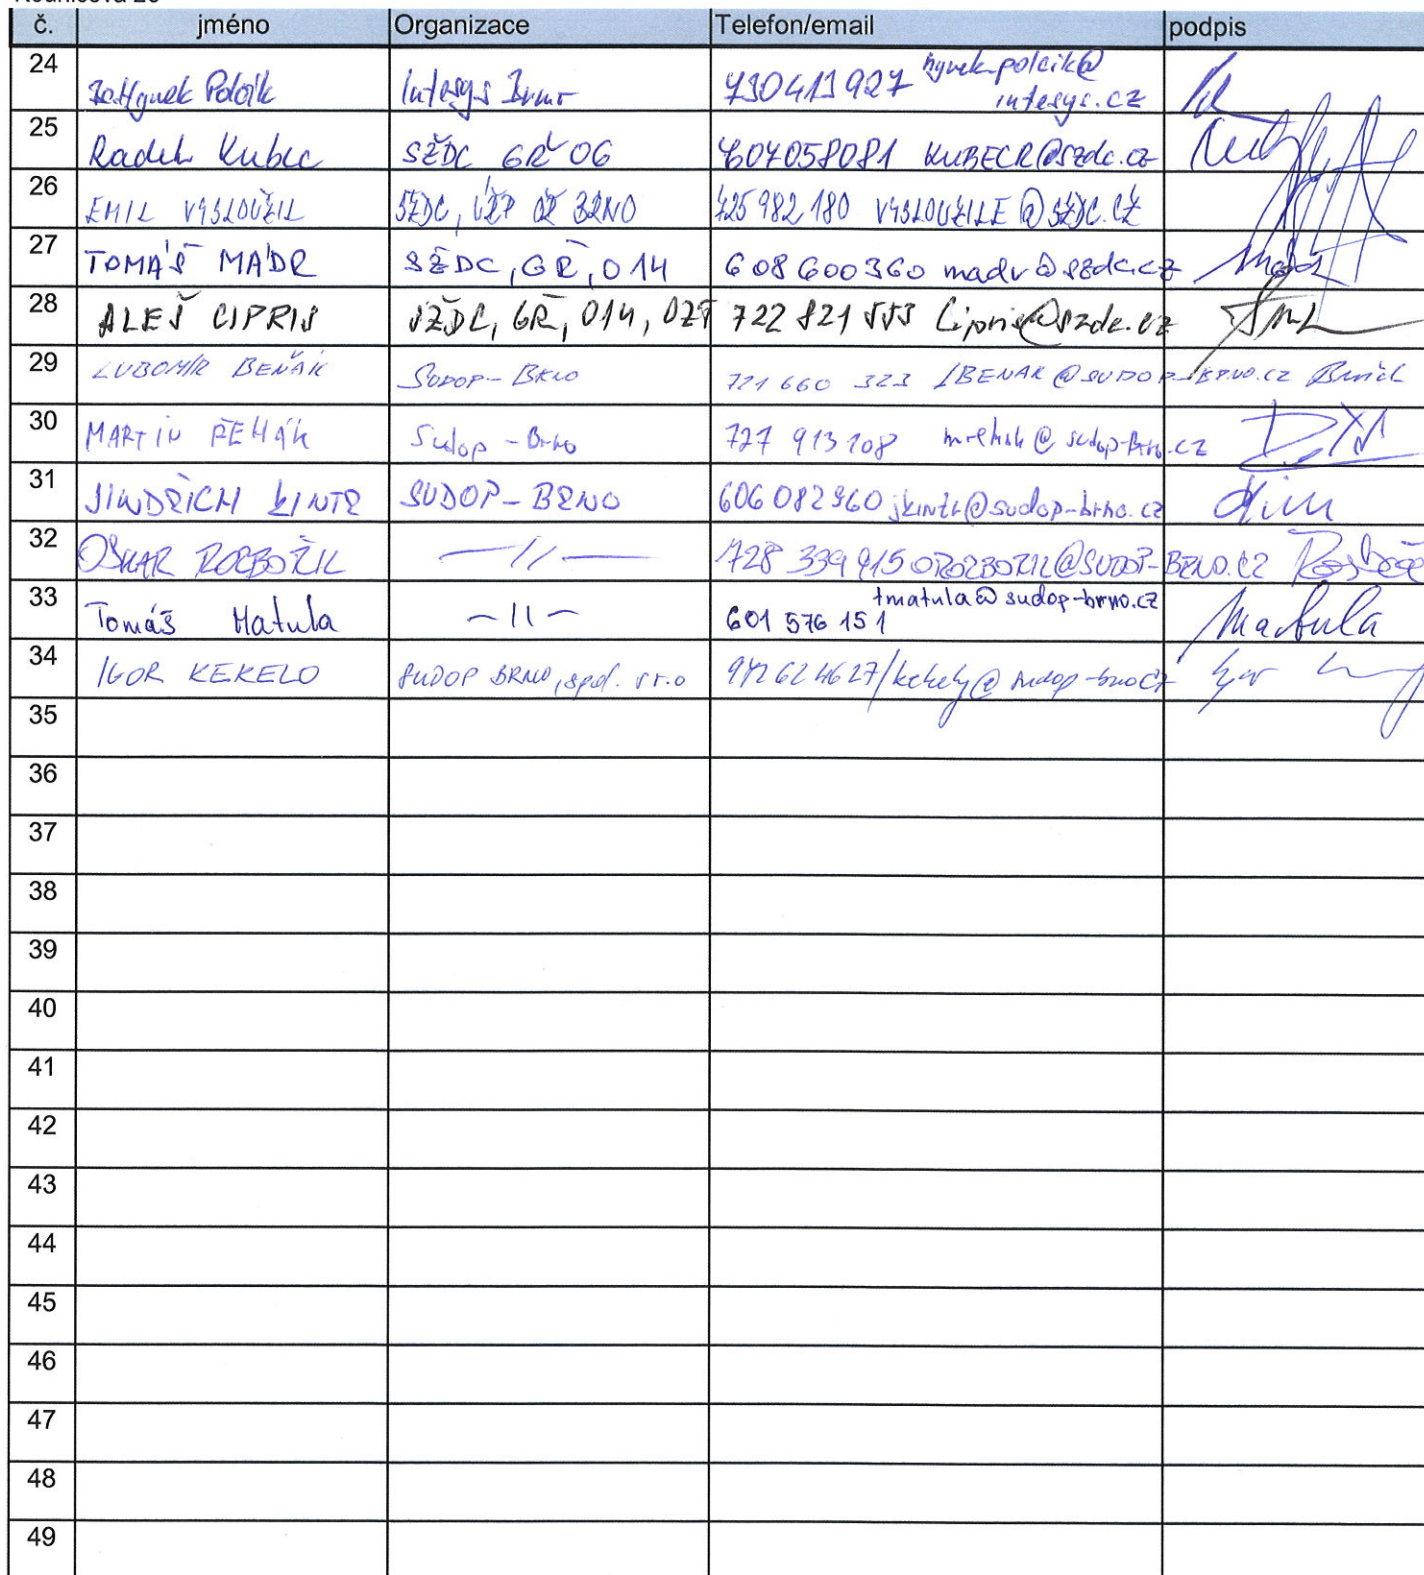 č. jméno Organizace Telefon/email podpis
24 Hynek Polcik Intesys Brno 730413927 hynek.polcik@
intesys.cz
25 Radek Kubec SŽDC GŘ O6 607058081 KUBECR@szdc.cz
26 EMIL VYSLOUŽIL SŽDC, BRNO 725 982 180 VYSLOUZILE@SŽDC.CZ
27 TOMÁŠ MÁDR SŽDC, GŘ, O14 608 600 360 madr@szdc.cz
28 ALEŠ CIPRIS SŽDC, GŘ, O14, 722 821 553 Cipris@szdc.cz
29 LUBOMÍR BEŇÁK SUDOP-BRNO 721 660 323 LBENAK@SUDOP-BRNO.CZ
30 MARTIN ŘEHÁK Sudop-Brno 727 913 108 mrehak@sudop-brno.cz
31 JINDŘICH KINTR SUDOP-BRNO 606 082 960 jkintr@sudop-brno.cz
32 OSKAR ROZBOŘIL —//— 728 339 915 OROZBORIL@SUDOP-BRNO.CZ
tmatula@sudop-brno.cz
33 Tomáš Matula —11— 601 576 151 Matula
34 IGOR KEKELO SUDOP BRNO, spol. s r.o 972624627/
35
36
37
38
39
40
41
42
43
44
45
46
47
48
49